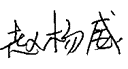 赵杨威